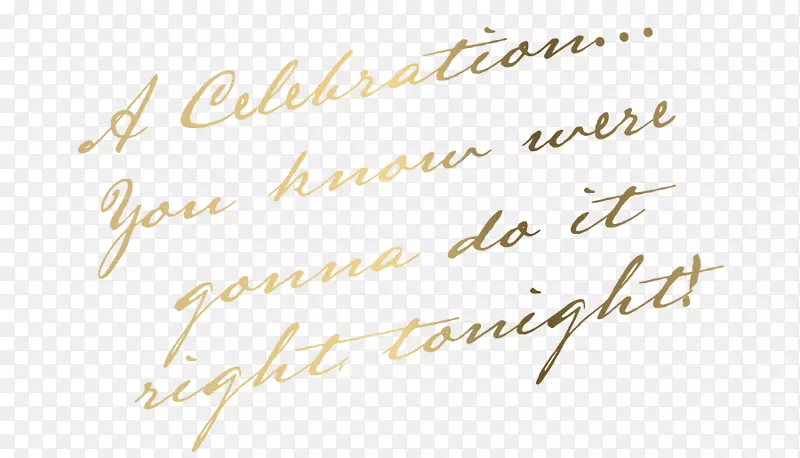 A Celebration...
You know were
gonna do it
right, tonight!